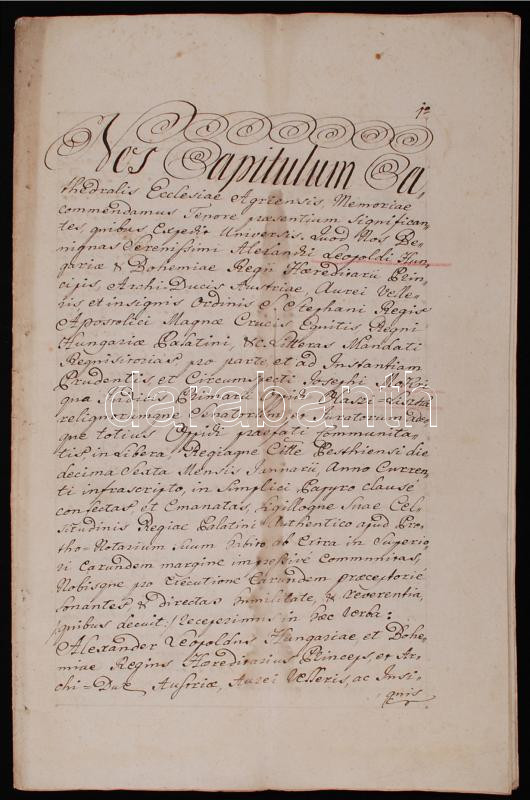 1º
Nos Capitulum Ca,
thedralis Ecclesiae Agriensis, Memoriae
commendamus Tenore praesentium significan-
tes, quibus Expedit Universis. Quod Nos Be-
nignas Serenissimi Alexandri Leopoldi Hun,
gariae & Bohemiae Regii Haereditarii Prin-
cipis, Archi-Ducis Austriae, Aurei Velle-
ris et insignis Ordinis S. Stephani Regis
Apostolici Magnae Crucis Equitis Regni
Hungariae Palatini, &c. Litteras Mandati
Requisitorias pro parte, et ad Instantiam
Prudentis, et Circumspecti Josephi
Judicis Primarii Oppidi
reliquorumque Senatorum, et Juratorum
que totius Oppidi praefati Communita-
tis, in Libera, Regiaque Citte Pesthiensi die
decima Sexta Mensis Januarii, Anno Curren-
ti infrascripto, in Simplici Papyro clause
confectas, et Emanatas, Sigilloque Suae Cel-
situdinis Regiae Palatini Authentico apud Pro-
tho-Notarium suum habito ab Extra in Superio-
ri Earundem margine impressive Communitas,
Nobisque pro Executione Earundem praeceptorie
sonantes, & directas humilitate, & reverentia,
quibus decuit, / recepimus in haec verba:
Alexander Leopoldus Hungariae, et Bohe-
miae Regius Haereditarius Princeps, et Ar-
chi-Dux Austriae, Aurei Velleris, ac Insi-
gnis
darabanth
darabanth
darabanth